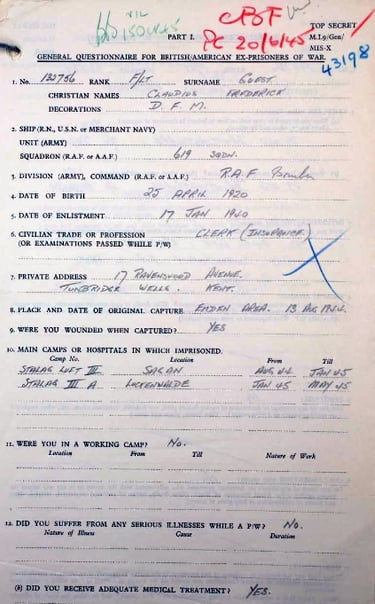 NIL
15 OCT 45
CPBF
PC 20/6/45
43198
TOP SECRET
PART I.
M.I.9/Gen/
MIS-X
GENERAL QUESTIONNAIRE FOR BRITISH/AMERICAN EX-PRISONERS OF WAR
1. No. 132756 RANK F/LT SURNAME GUEST
CHRISTIAN NAMES CLAUDIUS FREDERICK
DECORATIONS D.F.M.
2. SHIP (R.N., U.S.N. or MERCHANT NAVY)
UNIT (ARMY)
SQUADRON (R.A.F. or A.A.F.) 619 SQDN.
3. DIVISION (ARMY), COMMAND (R.A.F. or A.A.F.) R.A.F Bomber
4. DATE OF BIRTH 25 APRIL 1920
5. DATE OF ENLISTMENT 17 JAN 1940
6. CIVILIAN TRADE OR PROFESSION CLERK (INSURANCE)
(OR EXAMINATIONS PASSED WHILE P/W)
7. PRIVATE ADDRESS 17 RAVENSWOOD AVENUE.
TUNBRIDGE WELLS. KENT.
8. PLACE AND DATE OF ORIGINAL CAPTURE EMDEN AREA. 13 AUG 1944.
9. WERE YOU WOUNDED WHEN CAPTURED? YES
10. MAIN CAMPS OR HOSPITALS IN WHICH IMPRISONED.
Camp No. Location From Till
STALAG LUFT III SAGAN AUG 44 JAN 45
STALAG III A LUCKENWALDE JAN 45 MAY 45
11. WERE YOU IN A WORKING CAMP? No.
Location From Till Nature of Work
12. DID YOU SUFFER FROM ANY SERIOUS ILLNESSES WHILE A P/W? No.
Nature of Illness Cause Duration
(b) DID YOU RECEIVE ADEQUATE MEDICAL TREATMENT? YES.